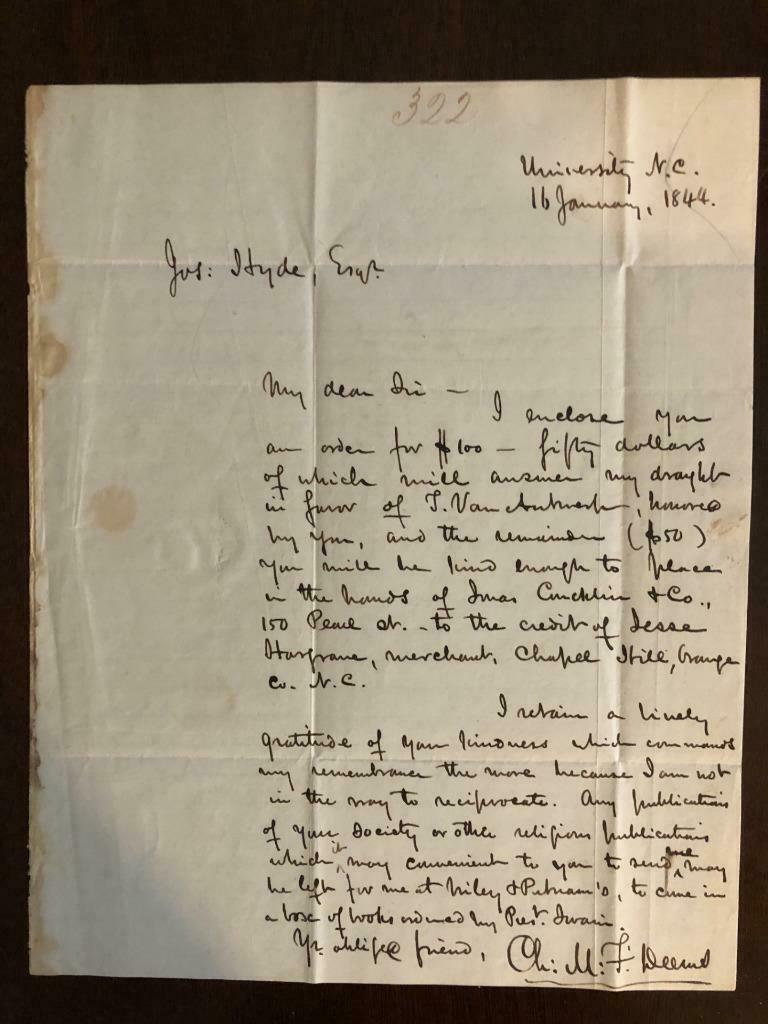 322
University N.C.
16 January, 1844.
Jos: Hyde, Esqr.
My dear Sir —
I enclose you
an order for $100 — fifty dollars
of which will answer my draught
in favor of T. Van Antwerp, honored
by you, and the remainder ($50)
you will be kind enough to place
in the hands of Conchlin & Co.,
150 Pearl st. - to the credit of Jesse
Hargrave, merchant, Chapel Hill, Orange
Co. N.C.
I retain a lively
gratitude of your kindness which commands
my remembrance the more because I am not
in the way to reciprocate. Any publications
of your Society or other religious publications
which it may convenient to you to send me may
be left for me at Wiley & Putnam's, to come in
a box of books ordered by Prest. Swain.
Yr. obliged friend, Ch: M: F. Deems